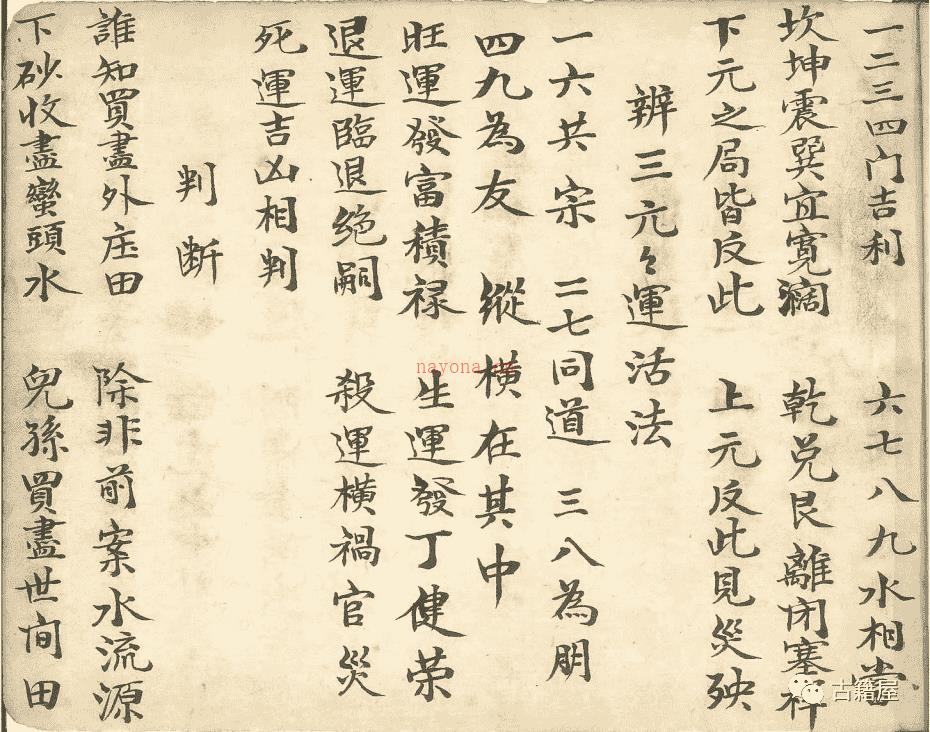 一二三四门吉利 六七八九水相當
坎坤震巽宜寬濶 乾兑艮離闭塞祥
下元之局皆反此 上元反此見災殃
辨三亢々運活法
一六共宗 二七同道 三八為朋
四九為友 縱橫在其中
旺運發富積禄 生運發丁健荣
退運臨退绝嗣 殺運横禍官災
死運吉凶相判
判断
誰知買盡外庄田 除非前案水流源
下砂收盡蠻頭水 兒孫買盡世间田
nayona.cn
古籍屋